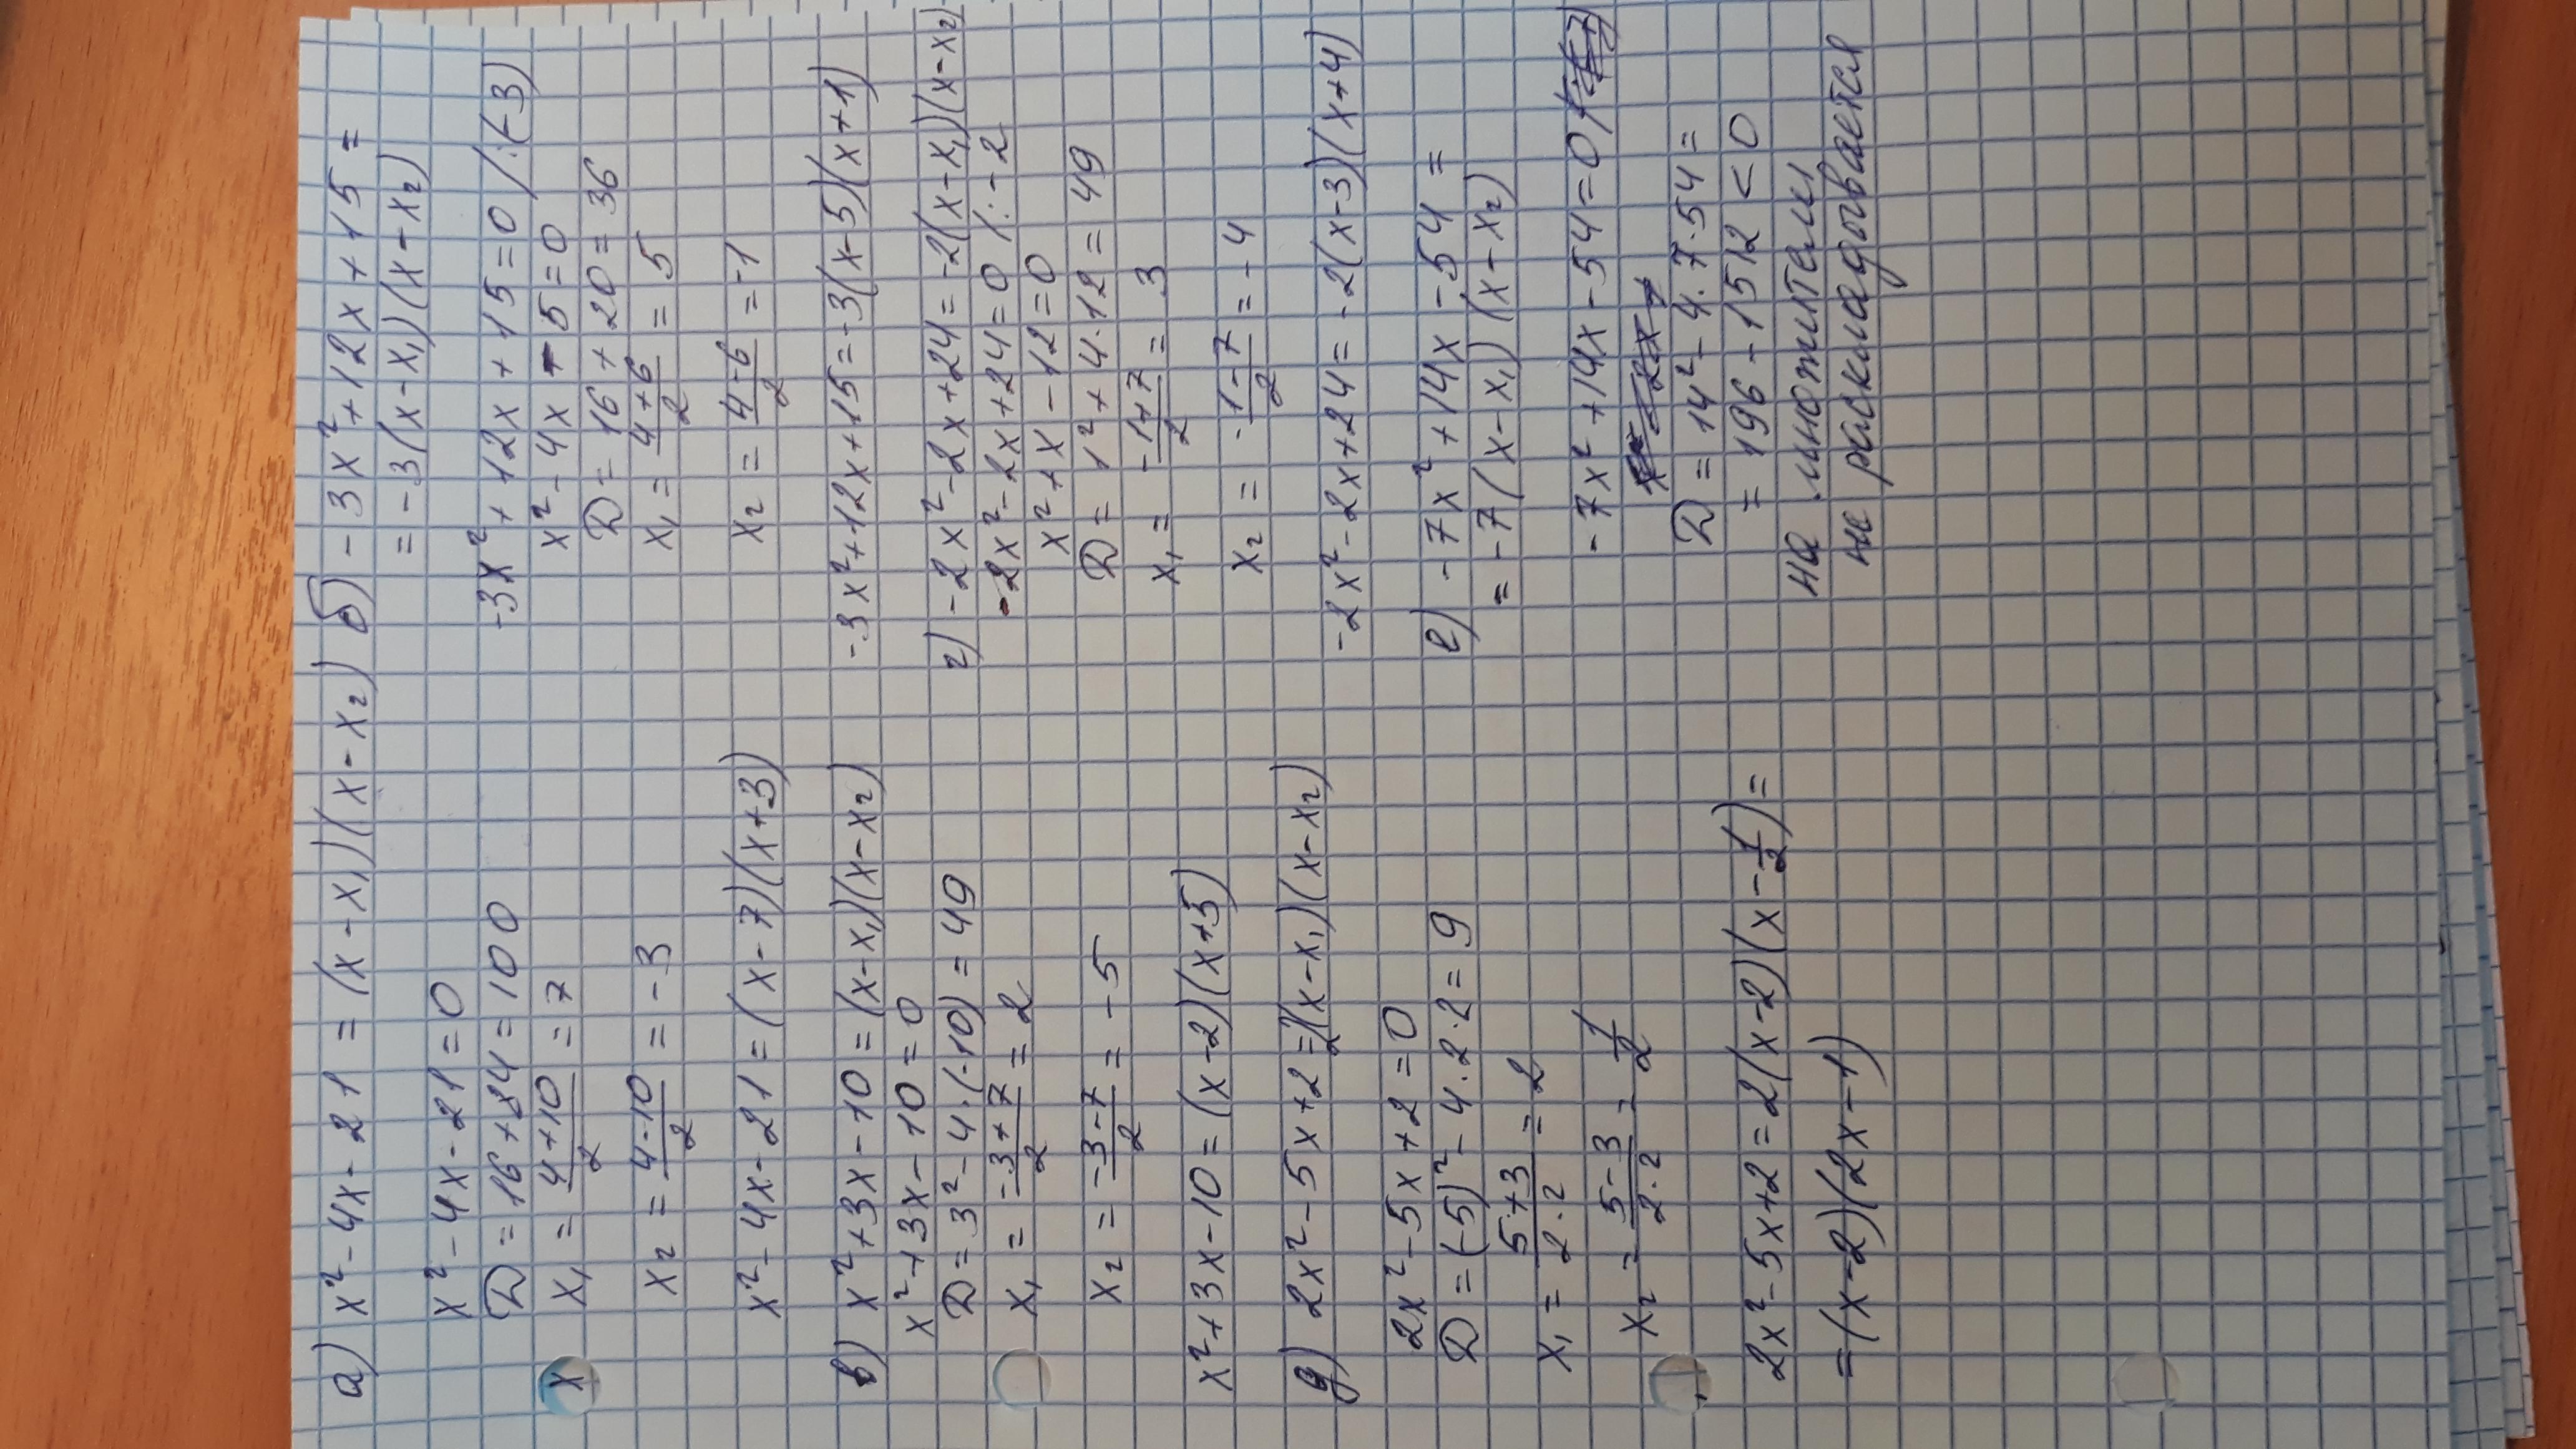 а) x² - 4x - 21 = (x - x₁)(x - x₂)
x² - 4x - 21 = 0
D = 16 + 84 = 100
x₁ = (4+10)/2 = 7
x
x₂ = (4-10)/2 = -3
x² - 4x - 21 = (x - 7)(x + 3)
в) x² + 3x - 10 = (x - x₁)(x - x₂)
x² + 3x - 10 = 0
D = 3² - 4·(-10) = 49
x₁ = (-3+7)/2 = 2
x₂ = (-3-7)/2 = -5
x² + 3x - 10 = (x - 2)(x + 5)
д) 2x² - 5x + 2 = 2(x - x₁)(x - x₂)
2x² - 5x + 2 = 0
D = (-5)² - 4·2·2 = 9
x₁ = (5+3)/(2·2) = 2
x₂ = (5-3)/(2·2) = 1/2
2x² - 5x + 2 = 2(x - 2)(x - 1/2) =
= (x - 2)(2x - 1)
б) -3x² + 12x + 15 =
= -3(x - x₁)(x - x₂)
-3x² + 12x + 15 = 0 /:(-3)
x² - 4x - 5 = 0
D = 16 + 20 = 36
x₁ = (4+6)/2 = 5
x₂ = (4-6)/2 = -1
-3x² + 12x + 15 = -3(x - 5)(x + 1)
г) -2x² - 2x + 24 = -2(x - x₁)(x - x₂)
-2x² - 2x + 24 = 0 /: -2
x² + x - 12 = 0
D = 1² + 4·12 = 49
x₁ = (-1+7)/2 = 3
x₂ = (-1-7)/2 = -4
-2x² - 2x + 24 = -2(x - 3)(x + 4)
е) -7x² + 14x - 54 =
= -7(x - x₁)(x - x₂)
-7x² + 14x - 54 = 0
D = 14² - 4·7·54 =
= 196 - 1512 < 0
на множители
не раскладывается